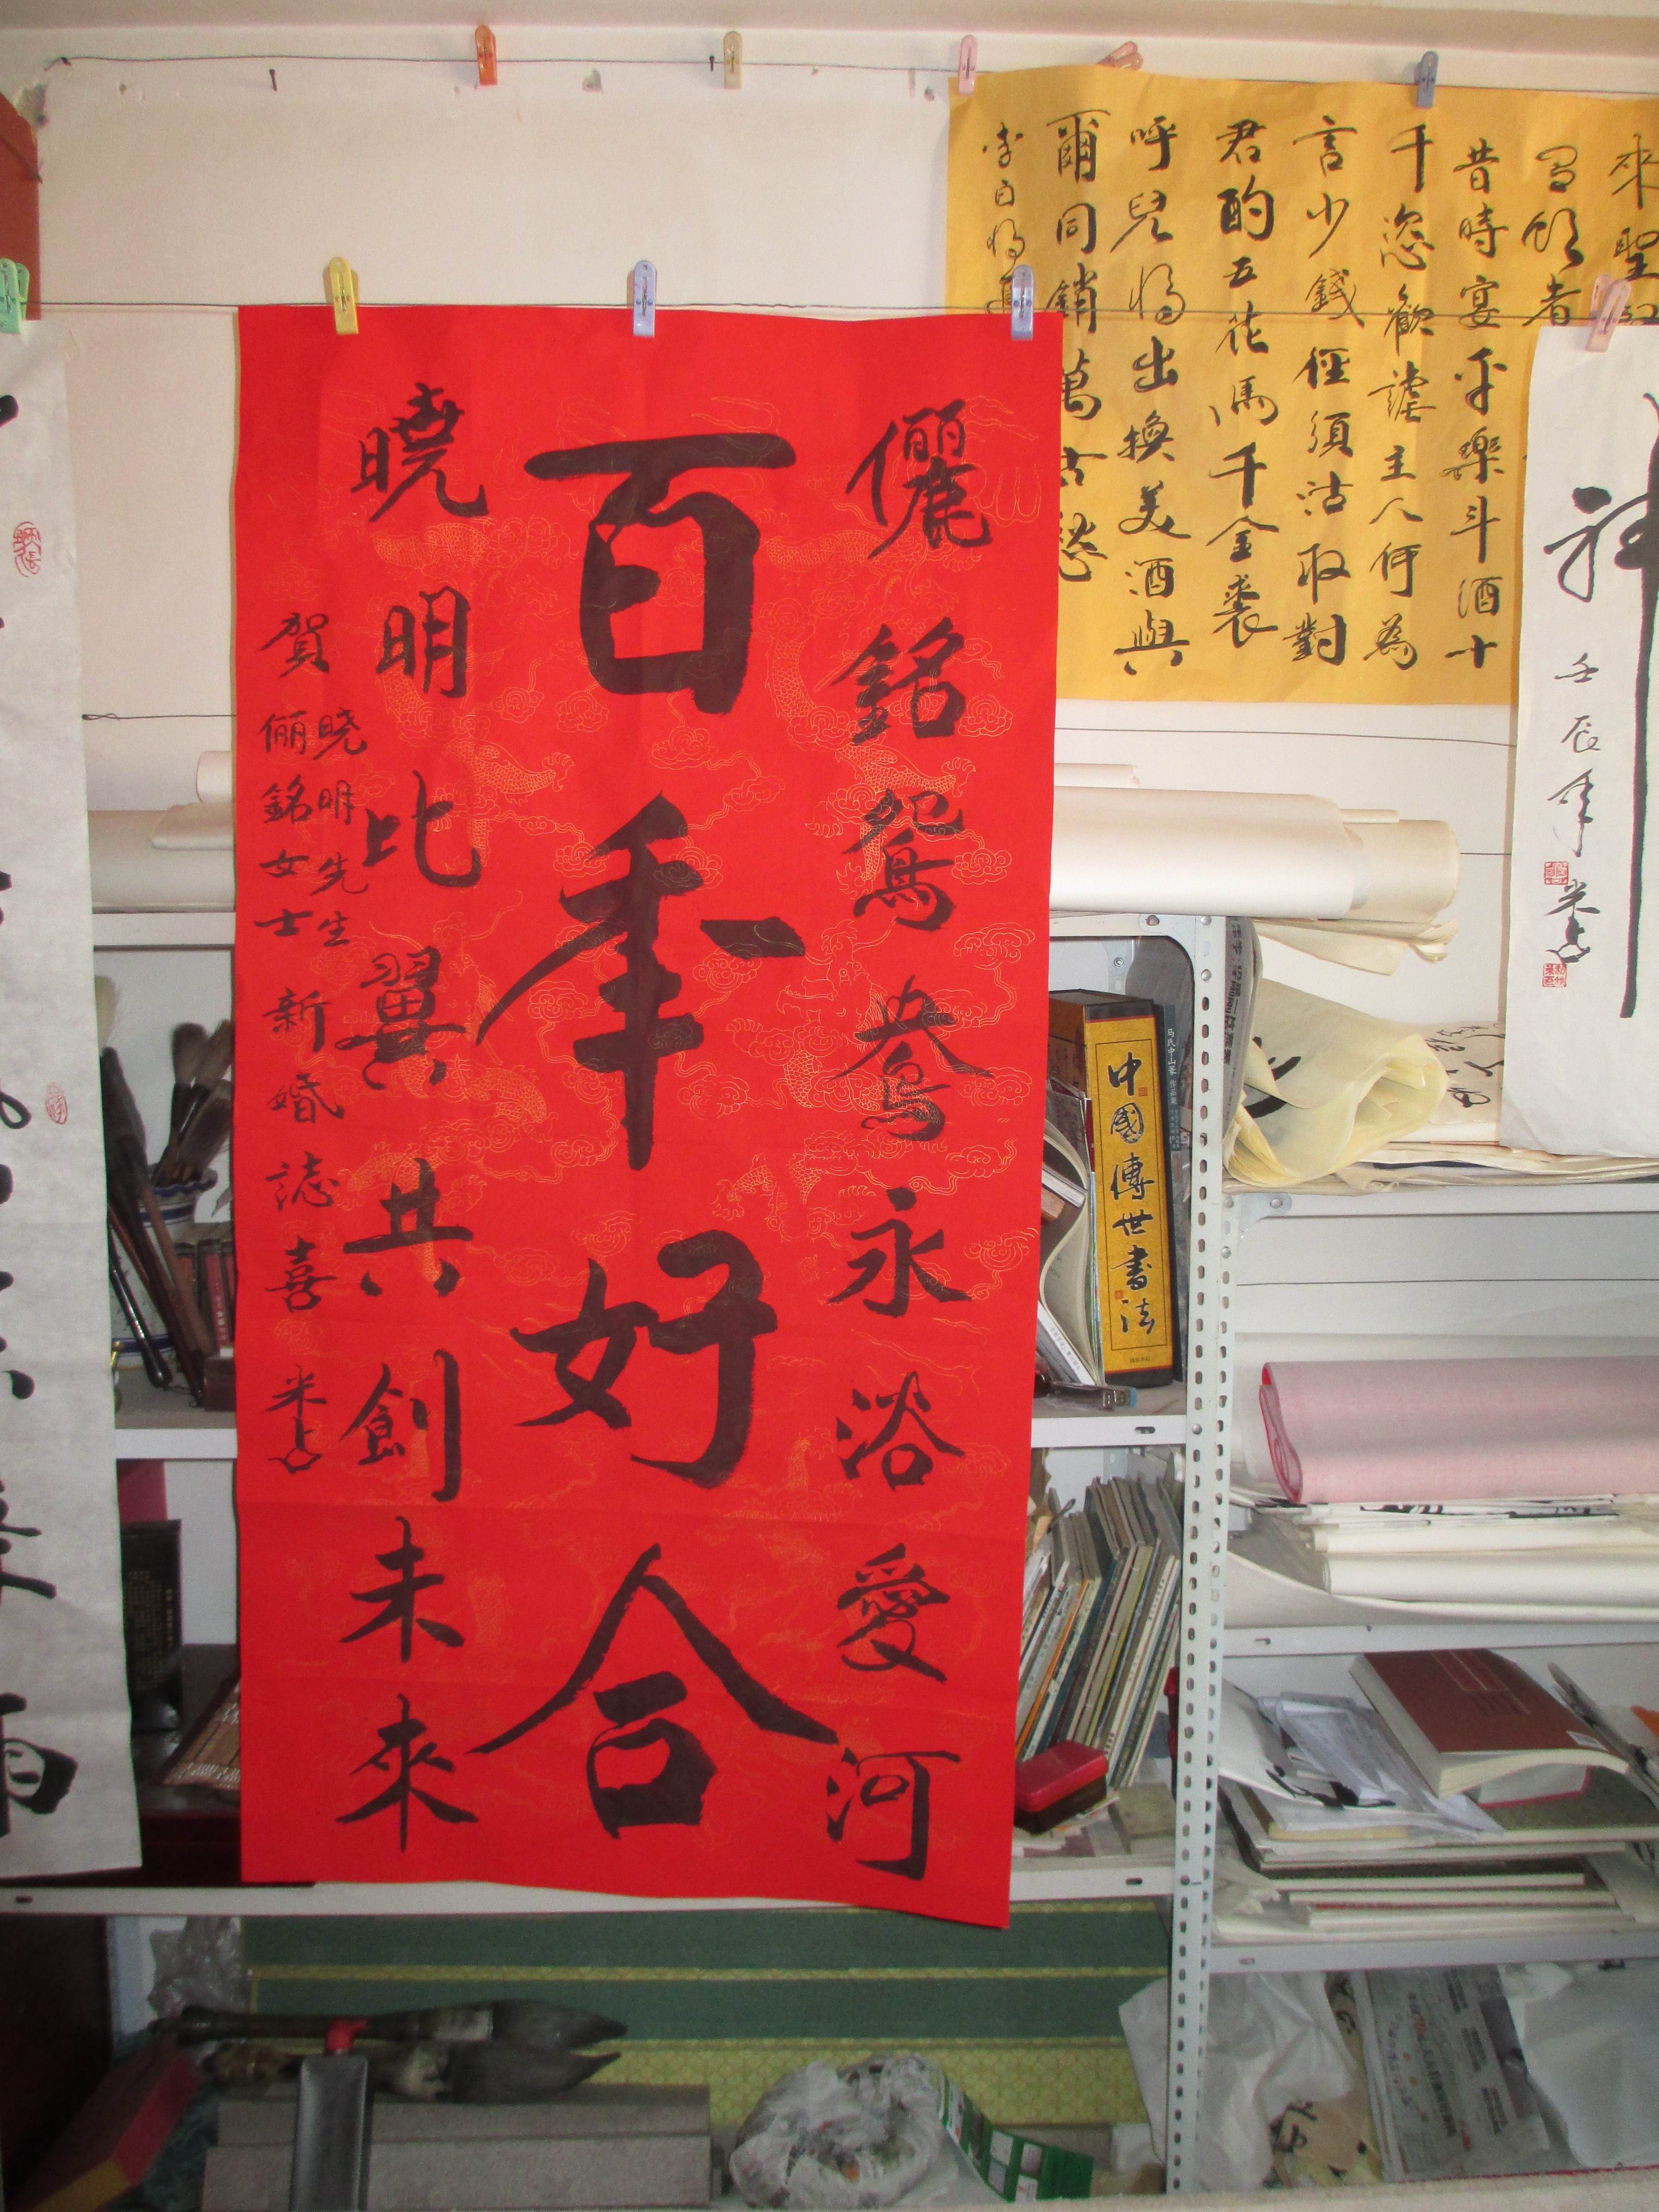 儷銘鴛鴦永浴愛河
百年好合
曉明比翼共創未來
賀
曉明先生
儷銘女士
新婚誌喜
米占
來聖
者
昔時宴平樂斗酒十
千恣歡謔主人何為
言少錢徑須沽取對
君酌五花馬千金裘
呼兒將出換美酒與
爾同銷萬古愁
李白將進
神
壬辰年
米占
中國傳世書法